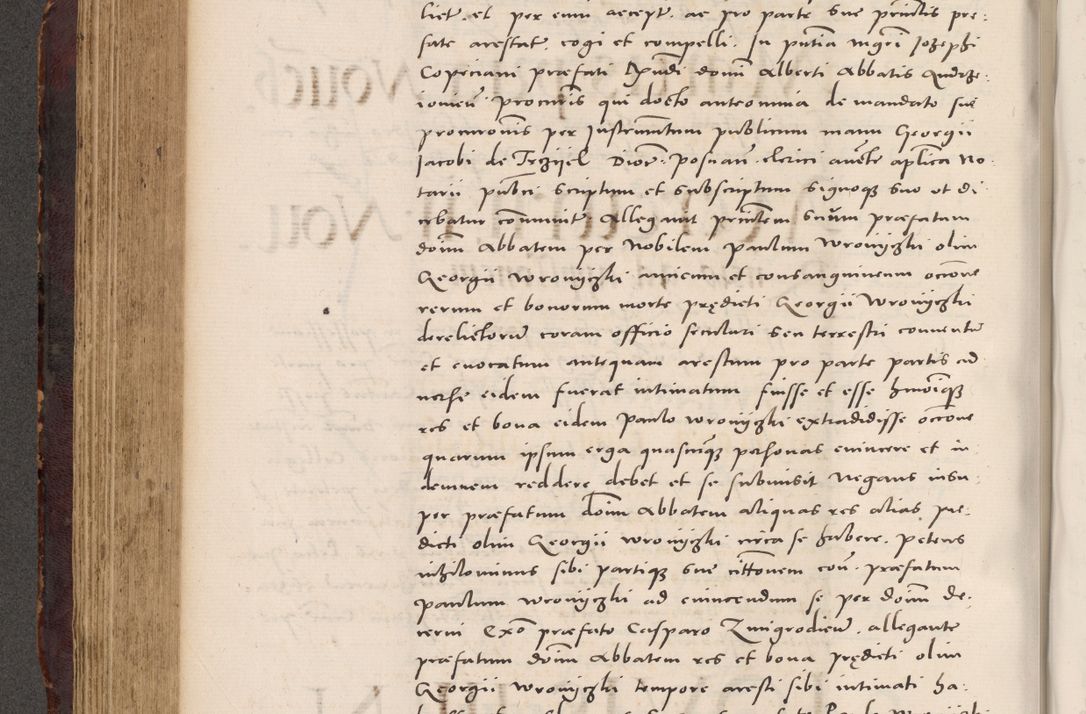 liet. et per eum accept. ac pro parte sue prīntis pre:
fate arestat. cogi et compelli. In pn̄tia mgr̄i Josephi
Copiciani præfati Ex̄ndi domī Alberti Abbatis Andrze:
iovieñ procur̄is qui docto anteomnia de mandato sue
procuronis per Instrum̄tum publicum manu Georgii
Jacobi de Trzyjel Dioc̄. posnañ. clerici auc̄te ap̄lica No
tarii pub̄ci scriptum et subscriptum signoqȝ suo vt di
cebatur com̄munit. Allegauit prīntem suum præfatum
dom̄ Abbatem per Nobilem Paulum Wroniczki olim
Georgii Wroniczki amicum et consanguineum occōne
rerum et bonorum morte prędicti Georgii Wroniczki
derelictorū coram officio seculari seu terrestri conuentū
et euocatum antequam arestum pro parte partis ad
uerse eidem fuerat intimatum fuisse et esse hmōiqȝ
res et bona eidem Paulo Wroniczki extradidisse occōne
quarum ipsum erga quascūqȝ personas euincere et in
demnem reddere debet et se submisit Negans insu
per præfatum dōm Abbatem aliquas res alias præ:
dicti olim Georgii Wroniczki circa se habere. Petens
nihilominus sibi partiqȝ sue citt̄onem con̄. præfatum
Paulum Wroniczki ad euincendum se per dom̄ de:
cerni Exō præfato Casparo Zmigrodieñ. allegante
præfatum dom̄ Abbatem res et bona prędicti olim
Georgii Wroniczki tempore aresti sibi intimati ha: